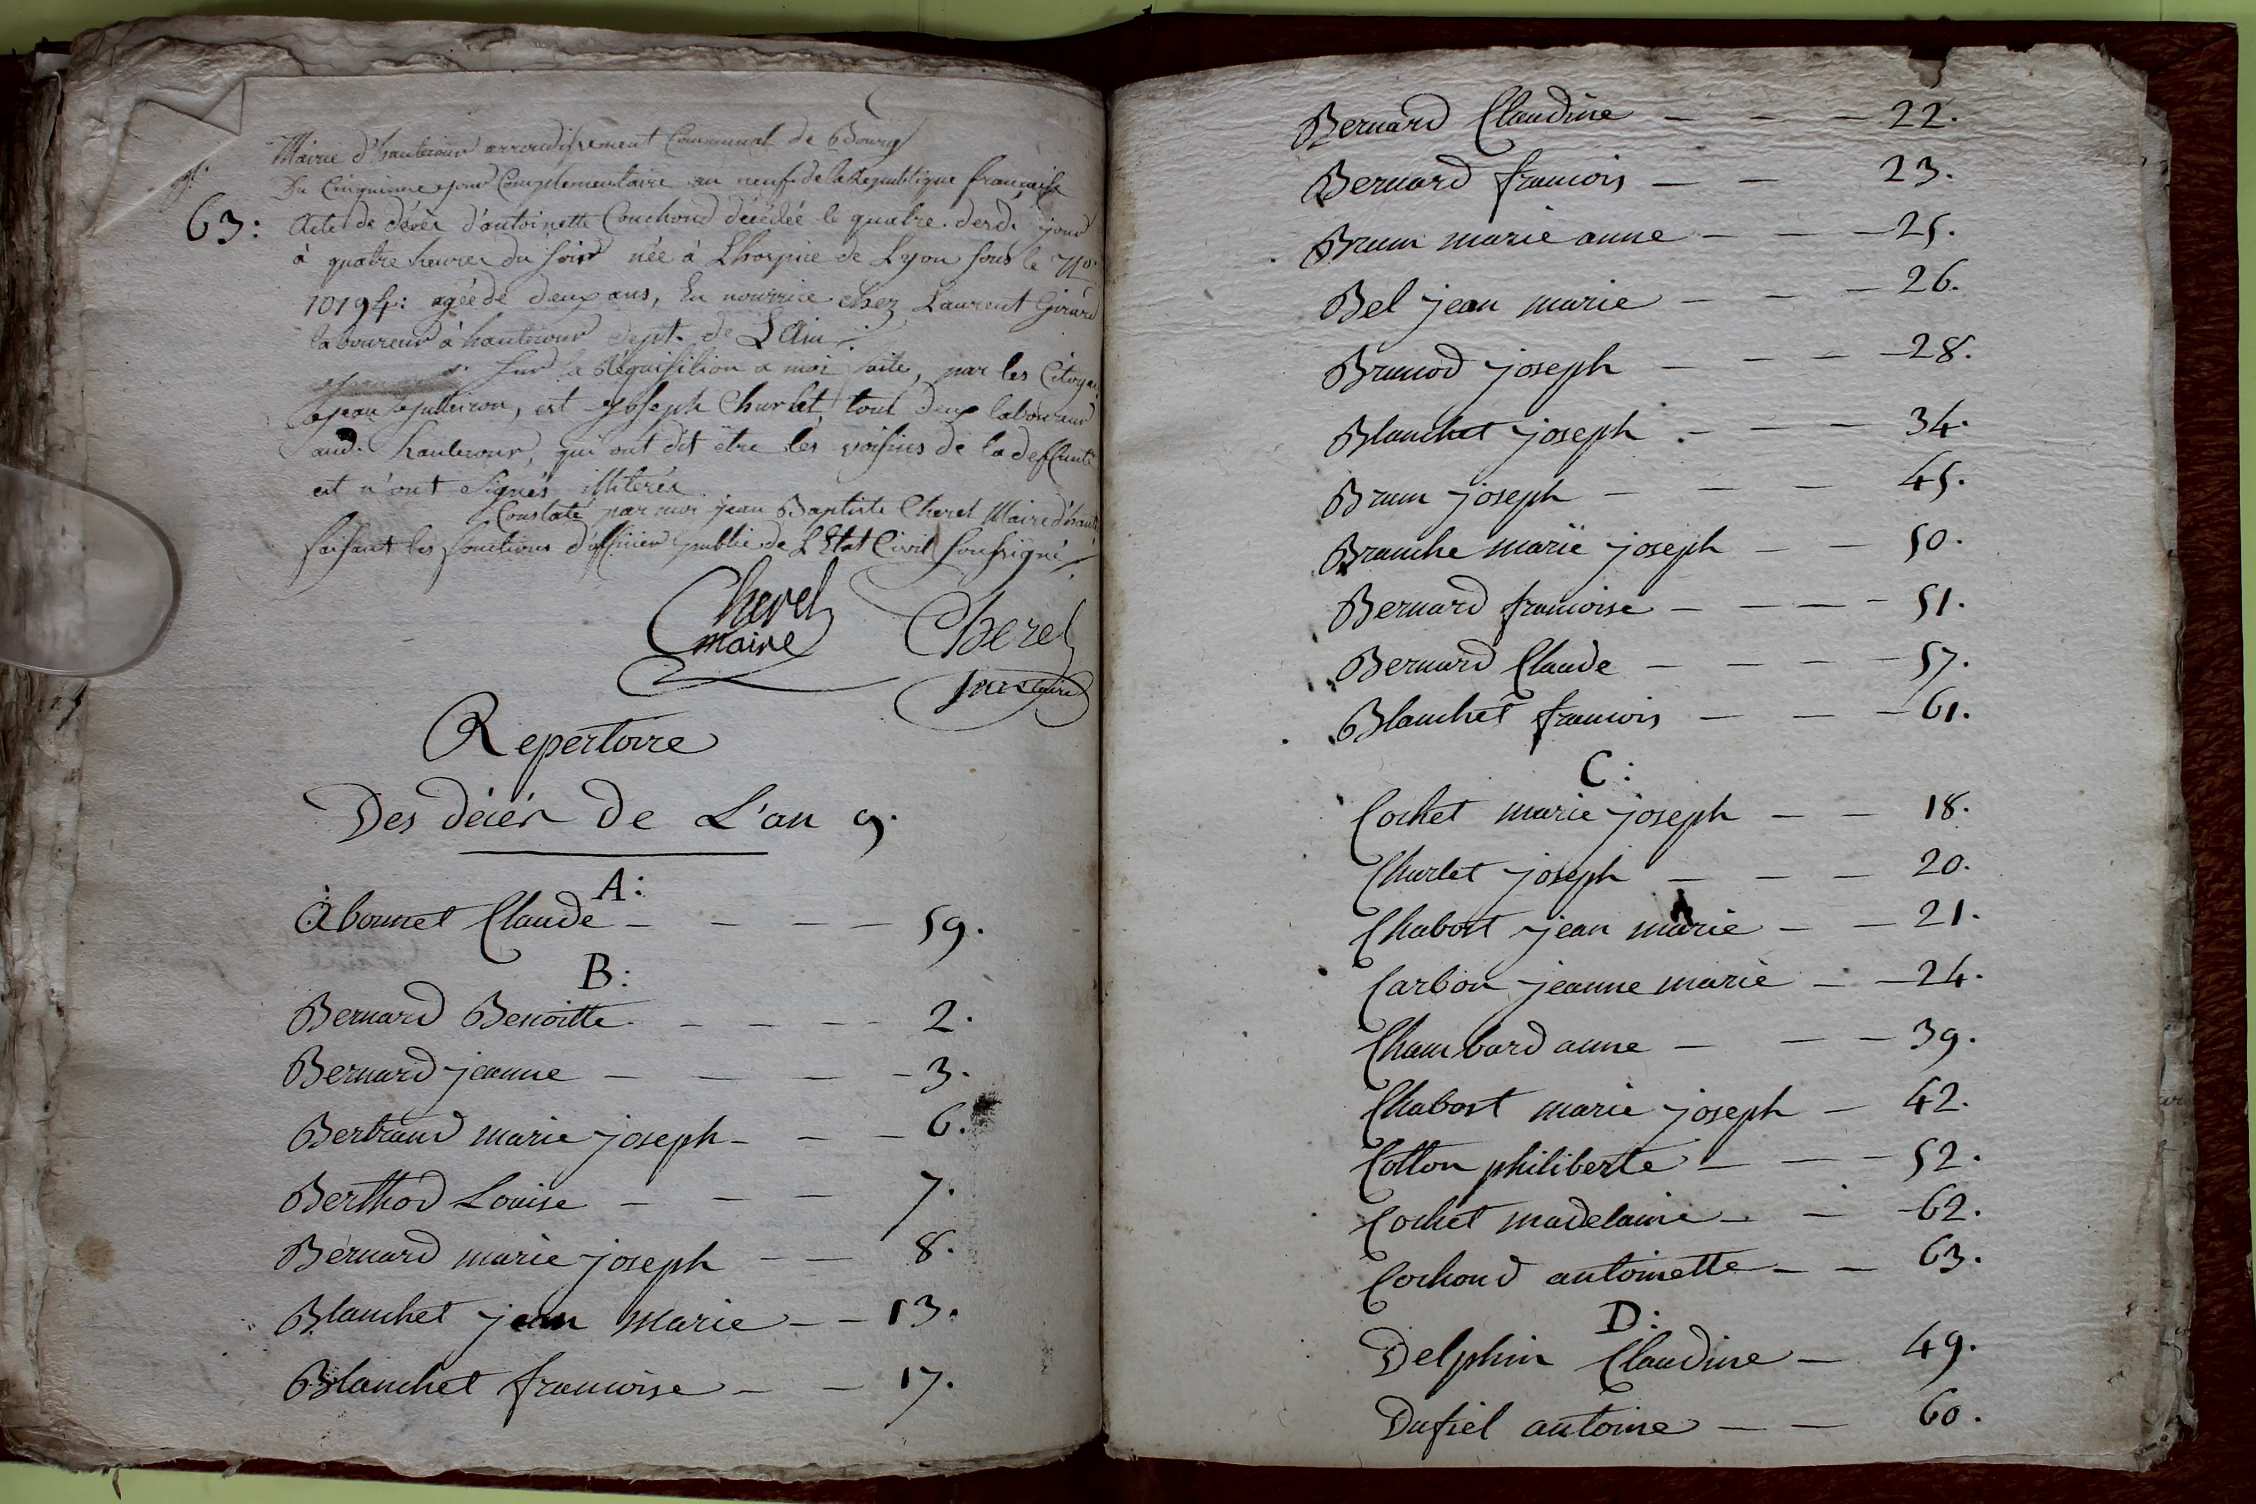 Mairie d'hautecour arrondissement Communal de Bourg
Du Cinquieme jour Complementaire an neuf de la Republique française
63: Acte de décès d'antoinette Couchoud décédée le quatre desd. jour
à quatre heures du soir née à Lhospice de Lyon sous le No.
10194: agée de deux ans, En nourrice chez Laurent Girard
laboureur à hautecour dept. de L'Ain
Sur la Réquisition a moi faite, par les Citoyens
jean, est joseph Churlet, tout deux laboureur
aud. hautecour, qui ont dit être les voisins de la deffunte
est n'ont signés illiterés
Constaté par moi jean Baptiste Cherel Maire d'haute
faisant les fonctions d'officier public de L'Etat Civil soussigné
Cherel
maire
Cherel
Repertoire
Des décés de L'an 9.
A:
Abonnet Claude - - - - 59.
B:
Bernard Benoitte - - - - 2.
Bernard jeanne - - - - - 3.
Bertrand marie joseph - - - 6.
Berthod Louise - - - 7.
Bernard marie joseph - - 8.
Blanchet jean Marie - - 13.
Blanchet francoise - - 17.
Bernard Claudine - - - 22.
Bernard francois - - 23.
Brun marie anne - - - 25.
Bel jean marie - - - 26.
Brunod joseph - - - - 28.
Blanchet joseph - - - 34.
Brun joseph - - - 45.
Branche marie joseph - - 50.
Bernard francoise - - - - 51.
Bernard Claude - - - - - 57.
Blanchet francois - - - 61.
C:
Cochet marie joseph - - 18.
Churlet joseph - - - 20.
Chabost jean marie - - 21.
Carbon jeanne marie - - 24.
Chambard anne - - - 39.
Chabost marie joseph - 42.
Cotton philiberte - - - 52.
Cochet madelaine - - - 62.
Cochoud antoinette - - 63.
D:
Delphin Claudine - 49.
Dufiel antoine - - 60.